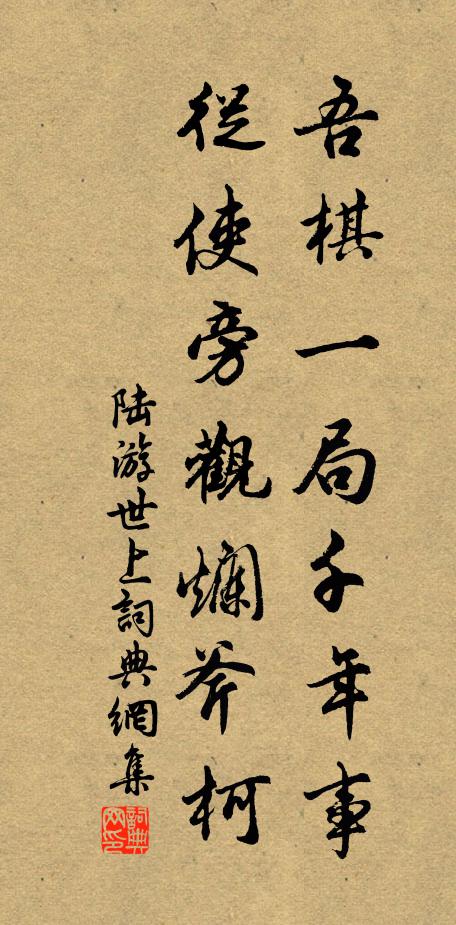 吾棋一局千年事
從使旁觀爛斧柯
陆游世上詞典網集
詞典網印